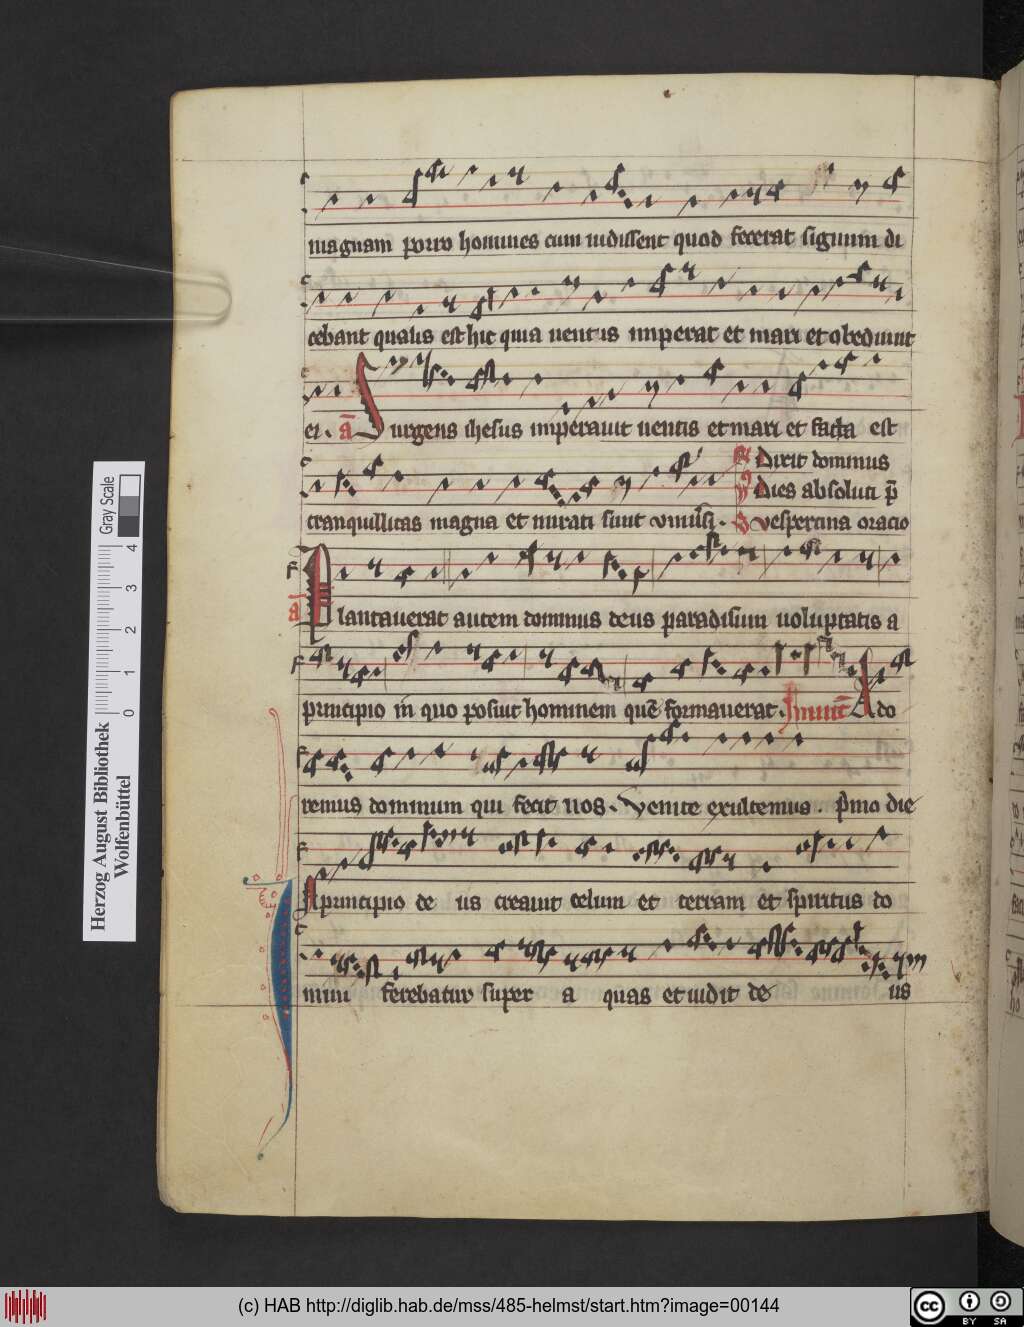 magnam porro homines cum uidissent quod fecerat signum di
cebant qualis est hic quia uentis imperat et mari et obediunt
ei. a Surgens ihesus imperauit uentis et mari et facta est
Dixit dominus
Dies absoluti p̄
tranquillitas magna et mirati sunt vniu'si. Vespertina oracio
a Plantauerat autem dominus deus paradisum uoluptatis a
principio in quo posuit hominem quē formauerat. Inuit Ado
remus dominum qui fecit nos. Venite exultemus. p'mo die
In principio de us creauit celum et terram et spiritus do
mini ferebatur super a quas et uidit de us
Herzog August Bibliothek
Wolfenbüttel
Gray Scale
0 1 2 3 4
(c) HAB http://diglib.hab.de/mss/485-helmst/start.htm?image=00144
cc BY SA